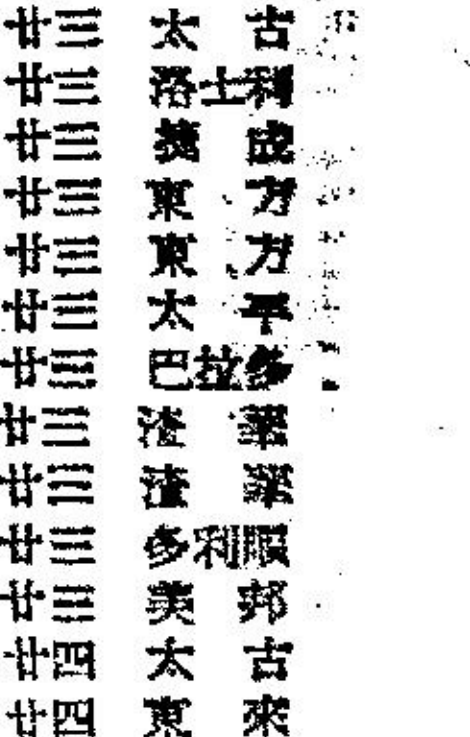 廿三 太古
廿三 洛士利
廿三 捷成
廿三 東方
廿三 東方
廿三 太平
廿三 巴拉多
廿三 渣華
廿三 渣華
廿三 多利順
廿三 美邦
廿四 太古
廿四 東來